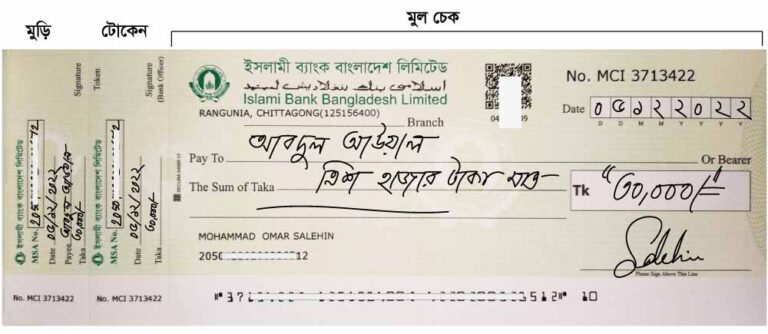 মুড়ি
টোকেন
মূল চেক
ইসলামী ব্যাংক বাংলাদেশ লিমিটেড
Islami Bank Bangladesh Limited
RANGUNIA, CHITTAGONG(125156400)
Branch
No. MCI 3713422
Date ০৫১২২০২২
D D M M Y Y Y Y
আবদুল আউয়াল
Pay To Or Bearer
The Sum of Taka ত্রিশ হাজার টাকা মাত্র
Tk "৩০,০০০/="
MOHAMMAD OMAR SALEHIN
2050 12
Salehin
Please Sign Above This Line
ইসলামী ব্যাংক বাংলাদেশ লিমিটেড
MSA No.
Date ০৫/১২/২০২২
Payee আবদুল আউয়াল
Taka ৩০,০০০/
Signature
No. MCI 3713422
ইসলামী ব্যাংক বাংলাদেশ লিমিটেড
MSA No. 2050
Date ০৫/১২/২০২২
Taka ৩০,০০০/
Token
Signature
(Bank Officer)
No. MCI 3713422
10